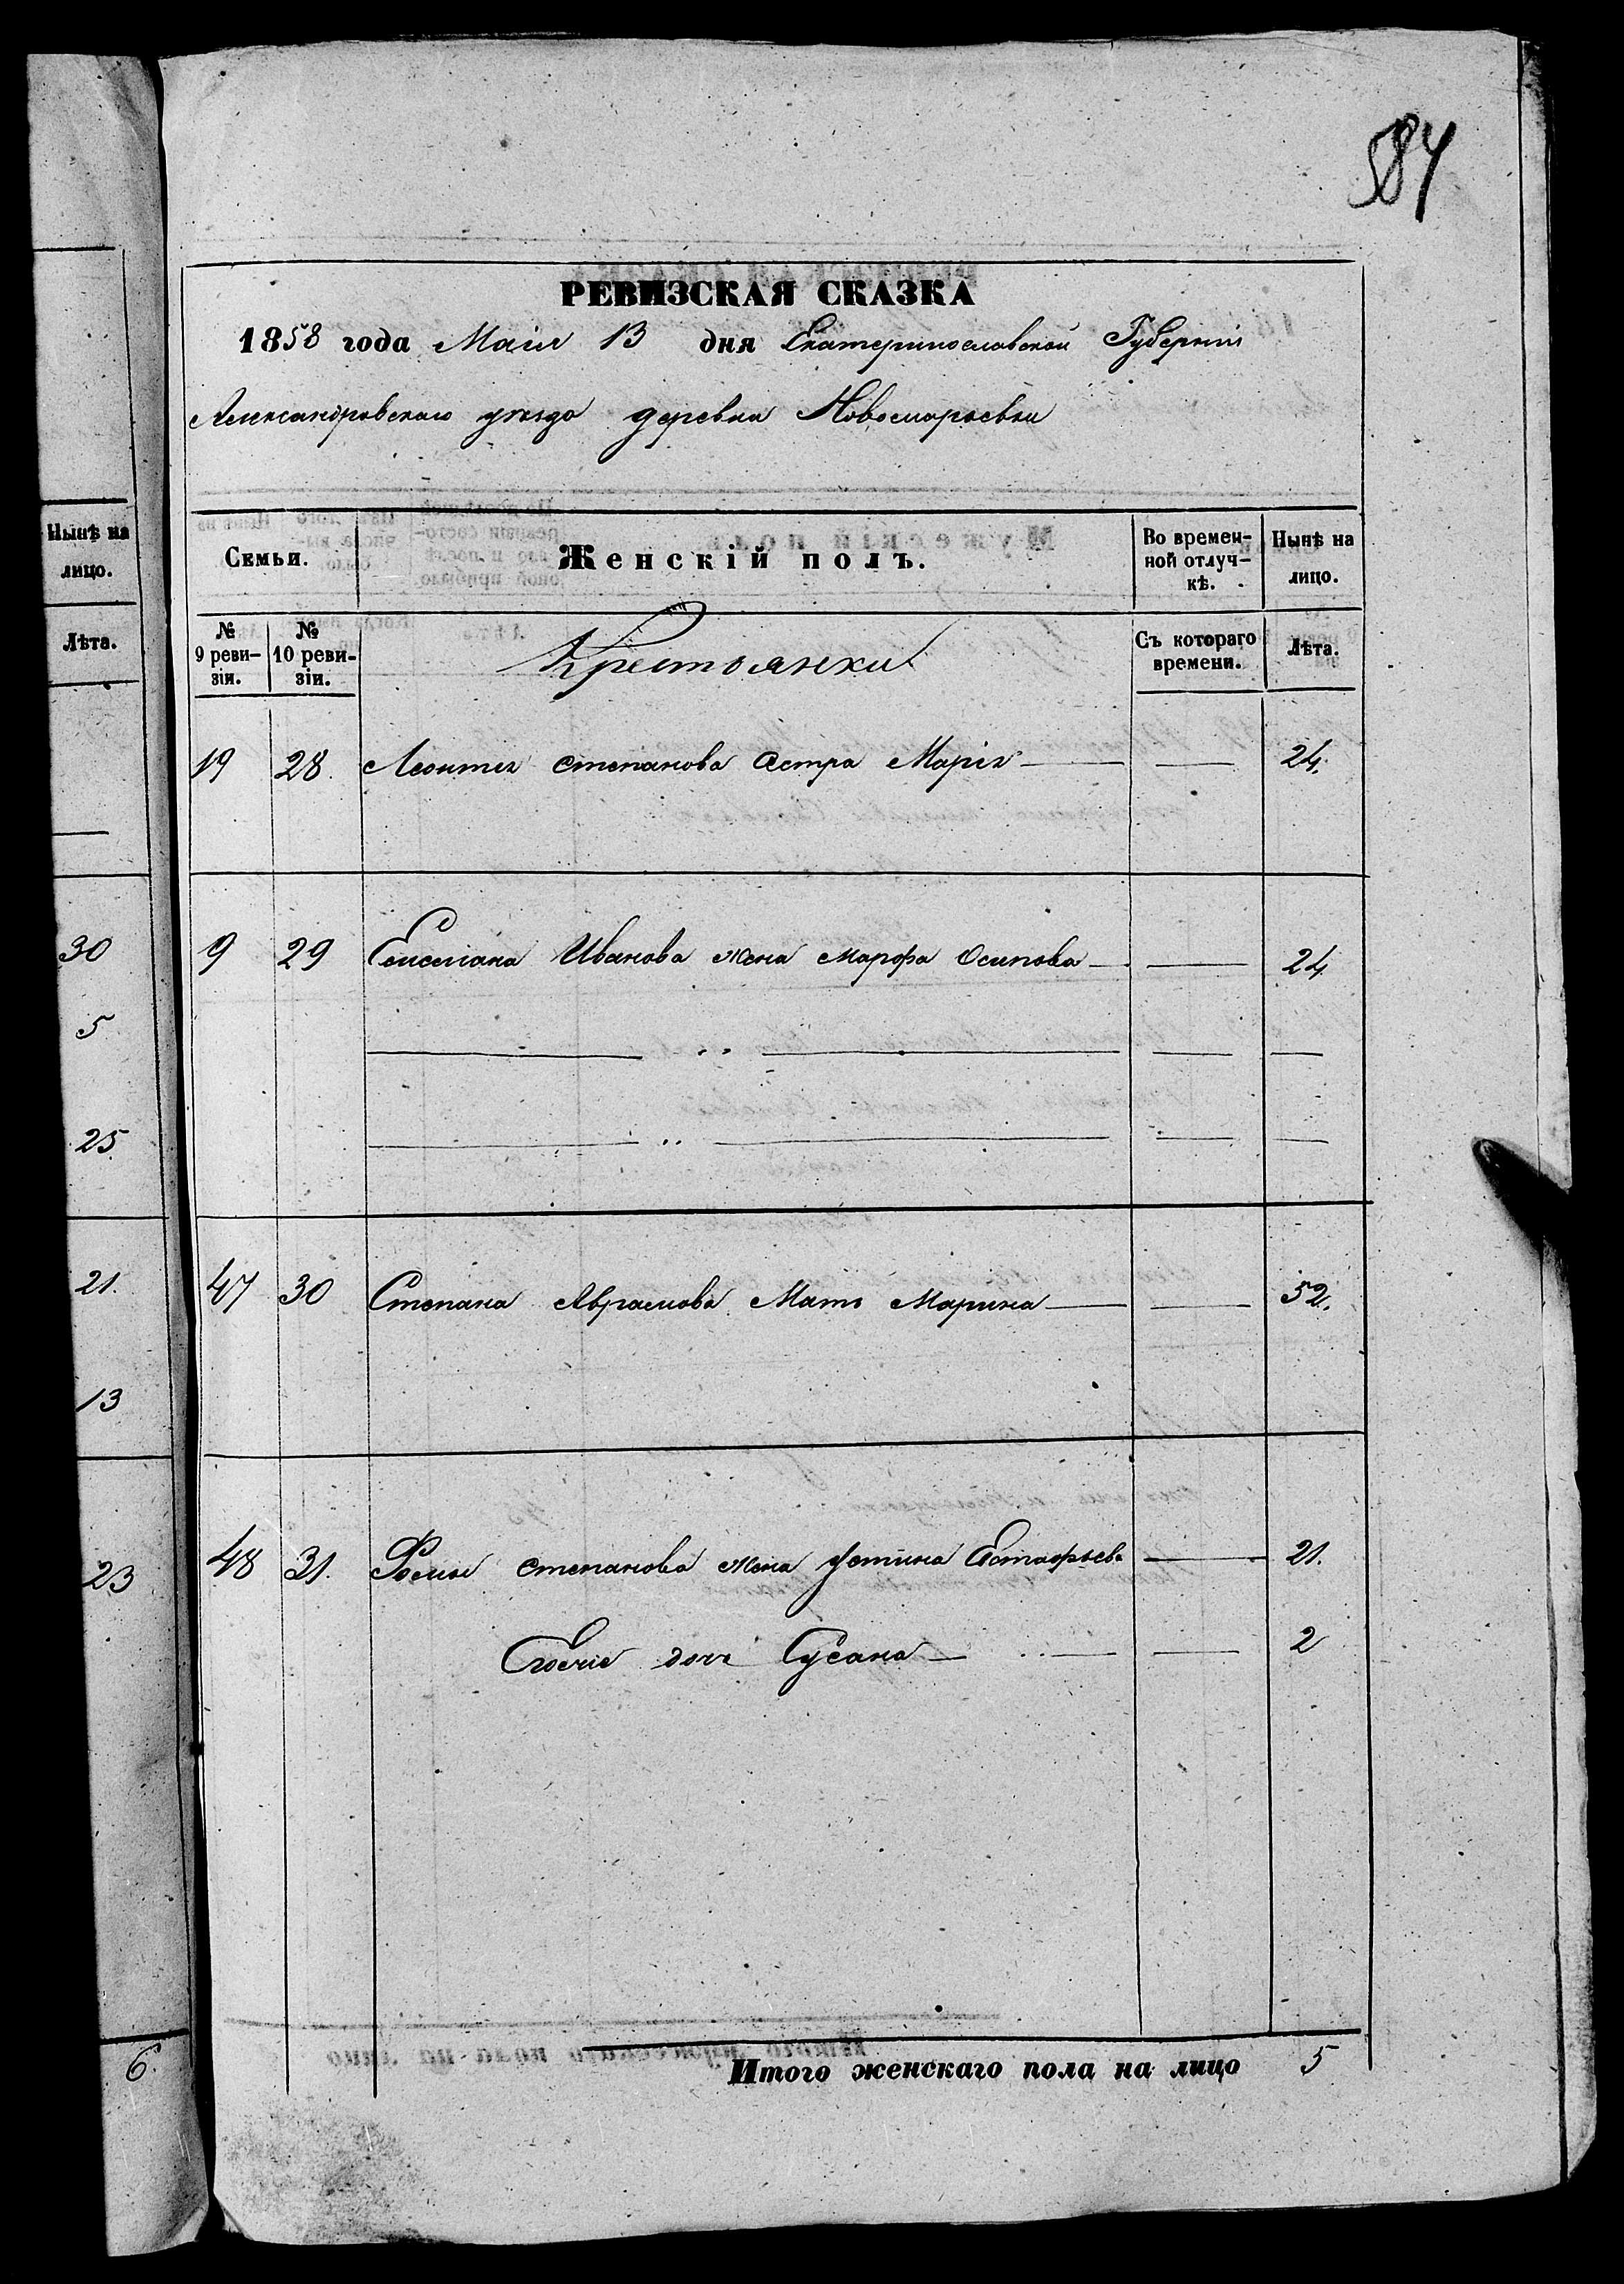 584
РЕВИЗСКАЯ СКАЗКА
1858 года Маія 13 дня Екатеринославской Губерніи
Александровскаго уезда деревна Новомарьевки
Нынѣ на лицо.
Лѣта.
30
5
25
21.
13
23
6
Семьи. Женскій полъ. Во времен-ной отлуч-кѣ. Нынѣ на лицо.
№ 9 реви-зіи. № 10 реви-зіи. Крестьянки Съ котораго времени. Лѣта.
19 28. Леонтия степанова сестра Марія — — 24.
9 29 Емелиана Иванова жена Марфа Осипова — — 24
— „ — — —
— „ — — —
47 30 Степана Аврамова Мать Марина — — 52.
48 31. Фомы степанова жена Устина Естафьева — 21.
дочь Сусана — — 2
Итого женскаго пола на лицо 5